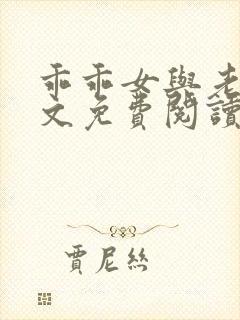 乖乖女與老
文免費閱讀
賈尼絲